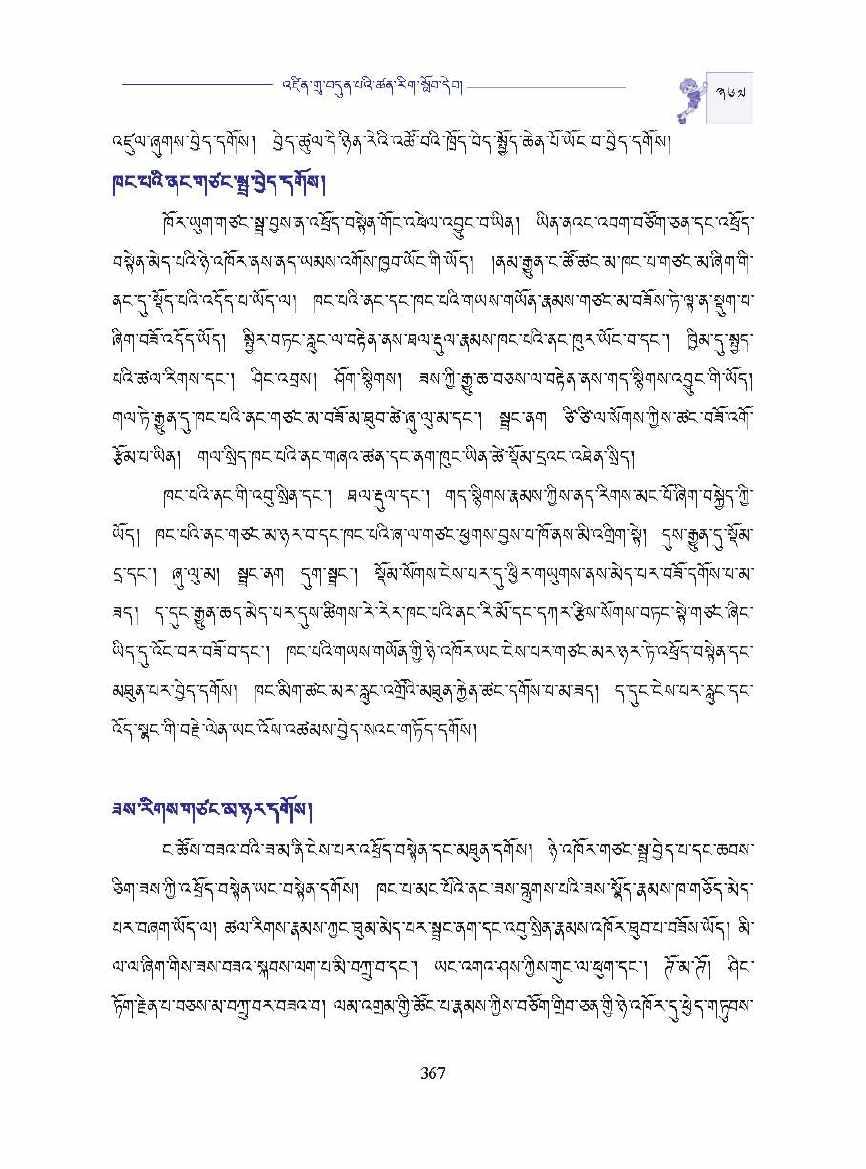 འཛིན་གྲྭ་བདུན་པའི་ཚན་རིག་སློབ་དེབ།
༣༦༧
འཛུལ་ཞུགས་བྱེད་དགོས། བྱེད་ཚུལ་དེ་ཉིན་རེའི་འཚོ་བའི་ཁྲོད་བེད་སྤྱོད་ཆེན་པོ་ཡོང་བ་བྱེད་དགོས།
ཁང་པའི་ནང་གཙང་སྦྲ་བྱེད་དགོས།
ཁོར་ཡུག་གཙང་སྦྲ་བྱས་ན་འཕྲོད་བསྟེན་གོང་འཕེལ་འབྱུང་བ་ཡིན། ཡིན་ནའང་འབག་བཙོག་ཅན་དང་འཕྲོད་
བསྟེན་མེད་པའི་ཉེ་འཁོར་ནས་ནད་ཡམས་འགོས་ཁྱབ་ཡོང་གི་ཡོད། །ནམ་རྒྱུན་ང་ཚོ་ཚང་མ་ཁང་པ་གཙང་མ་ཞིག་གི་
ནང་དུ་སྡོད་པའི་འདོད་པ་ཡོད་ལ། ཁང་པའི་ནང་དང་ཁང་པའི་གཡས་གཡོན་རྣམས་གཙང་མ་བཟོས་ཏེ་ལྟ་ན་སྡུག་པ་
ཞིག་བཟོ་འདོད་ཡོད། སྤྱིར་བཏང་རླུང་ལ་བརྟེན་ནས་ཐལ་རྡུལ་རྣམས་ཁང་པའི་ནང་ཁུར་ཡོང་བ་དང་། ཁྱིམ་དུ་སྤྱད་
པའི་ཚལ་རིགས་དང་། ཤིང་འབྲས། ཤོག་སྙིགས། ཟས་ཀྱི་རྒྱུ་ཆ་བཅས་ལ་བརྟེན་ནས་གད་སྙིགས་འབྱུང་གི་ཡོད།
གལ་ཏེ་རྒྱུན་དུ་ཁང་པའི་ནང་གཙང་མ་བཟོ་མ་ཐུབ་ཚེ་ཞུ་ལུ་མ་དང་། སྦྲང་ནག ཙི་ཙི་ལ་སོགས་ཀྱིས་ཚང་བཟོ་འགོ་
རྩོམ་པ་ཡིན། གལ་སྲིད་ཁང་པའི་ནང་གཞའ་ཚན་དང་ནག་ཁུང་ཡིན་ཚེ་སྡོམ་དྲའང་འཐེན་སྲིད།
ཁང་པའི་ནང་གི་འབུ་སྲིན་དང་། ཐལ་རྡུལ་དང་། གད་སྙིགས་རྣམས་ཀྱིས་ནད་རིགས་མང་པོ་ཞིག་བསྐྱེད་ཀྱི་
ཡོད། ཁང་པའི་ནང་གཙང་མ་ཉར་བ་དང་ཁང་པའི་ཞ་ལ་གཙང་ཕྱགས་བྱས་པ་ཁོ་ནས་མི་འགྲིག་སྟེ། དུས་རྒྱུན་དུ་སྡོམ་
དྲ་དང་། ཞུ་ལུ་མ། སྦྲང་ནག དུག་སྦྲང་། སྡོམ་སོགས་ངེས་པར་དུ་ཕྱིར་གཡུགས་ནས་མེད་པར་བཟོ་དགོས་པ་མ་
ཟད། ད་དུང་རྒྱུན་ཆད་མེད་པར་དུས་ཚིགས་རེ་རེར་ཁང་པའི་ནང་རི་མོ་དང་དཀར་རྩིས་སོགས་བཏང་སྟེ་གཙང་ཞིང་
ཡིད་དུ་འོང་བར་བཟོ་བ་དང་། ཁང་པའི་གཡས་གཡོན་གྱི་ཉེ་འཁོར་ཡང་ངེས་པར་གཙང་མར་ཉར་ཏེ་འཕྲོད་བསྟེན་དང་
མཐུན་པར་བྱེད་དགོས། ཁང་མིག་ཚང་མར་རླུང་འགྲོའི་མཐུན་རྐྱེན་ཚང་དགོས་པ་མ་ཟད། ད་དུང་ངེས་པར་རླུང་དང་
འོད་སྣང་གི་བརྗེ་ལེན་ཡང་འོས་འཚམས་བྱེད་སའང་གཏོད་དགོས།
ཟས་རིགས་གཙང་མ་ཉར་དགོས།
ང་ཚོས་བཟའ་བའི་ཟ་མ་ནི་ངེས་པར་འཕྲོད་བསྟེན་དང་མཐུན་དགོས། ཉེ་འཁོར་གཙང་སྦྲ་བྱེད་པ་དང་ཆབས་
ཅིག་ཟས་ཀྱི་འཕྲོད་བསྟེན་ཡང་བསྟེན་དགོས། ཁང་པ་མང་པོའི་ནང་ཟས་བླུགས་པའི་ཟས་སྣོད་རྣམས་ཁ་གཅོད་མེད་
པར་བཞག་ཡོད་ལ། ཚལ་རིགས་རྣམས་ཀྱང་ཐུམ་མེད་པར་སྦྲང་ནག་དང་འབུ་སྲིན་རྣམས་འཁོར་ཐུབ་པ་བཟོས་ཡོད། མི་
ལ་ལ་ཞིག་གིས་ཟས་བཟའ་སྐབས་ལག་པ་མི་བཀྲུ་བ་དང་། ཡང་འགའ་ཤས་ཀྱིས་གུང་ལ་ཕུག་དང་། ཊོ་མ་ཊོ། ཤིང་
ཏོག་རྗེན་པ་བཅས་མ་བཀྲུ་བར་བཟའ་བ། ལམ་འགྲམ་གྱི་ཚོང་པ་རྣམས་ཀྱིས་བཙོག་གྲིབ་ཅན་གྱི་ཉེ་འཁོར་དུ་ཕྱེད་གཏུབས་
367